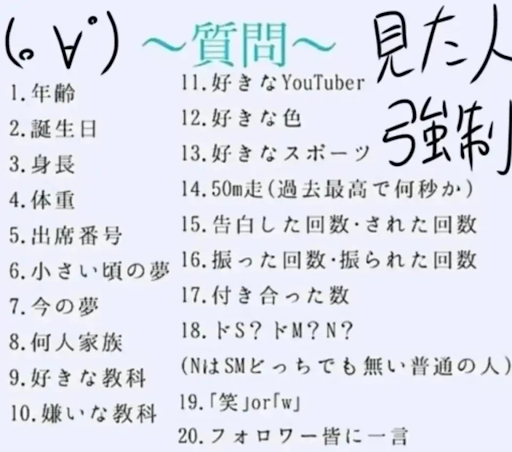 (｡∀ﾟ)
～質問～
見た人
強制
1.年齢
2.誕生日
3.身長
4.体重
5.出席番号
6.小さい頃の夢
7.今の夢
8.何人家族
9.好きな教科
10.嫌いな教科
11.好きなYouTuber
12.好きな色
13.好きなスポーツ
14.50m走(過去最高で何秒か)
15.告白した回数･された回数
16.振った回数･振られた回数
17.付き合った数
18.ドS？ドM？N？
(NはSMどっちでも無い普通の人)
19.｢笑｣or｢w｣
20.フォロワー皆に一言